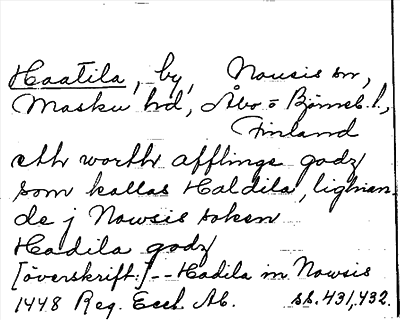 Haatila, by, Nousis sn,
Masku hd, Åbo o Björneb. l.,
Finland
eth worth afflinge godz
som kallas Haldila, lighian
de j Nowsis soken
Hadila godz
[överskrift:] -- Hadila in Nowsis
1448 Reg. Eccl. Ab. sk. 431,432.